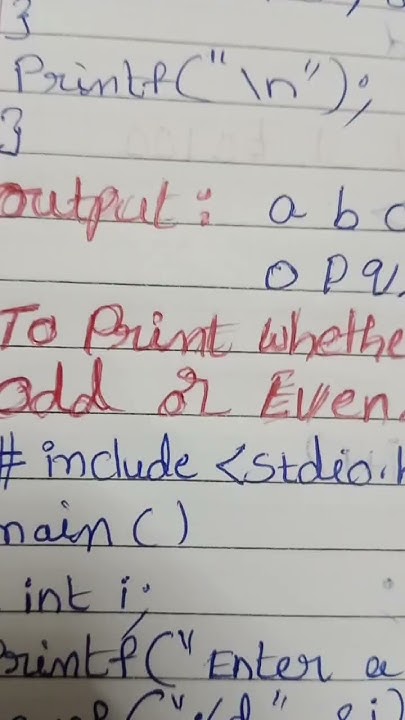 }
Printf("\n");
}
output: a b c
o p q
To Print whethe
odd or Even.
# include <stdio.h
main()
int i;
Printf("Enter a
("%d", &i)